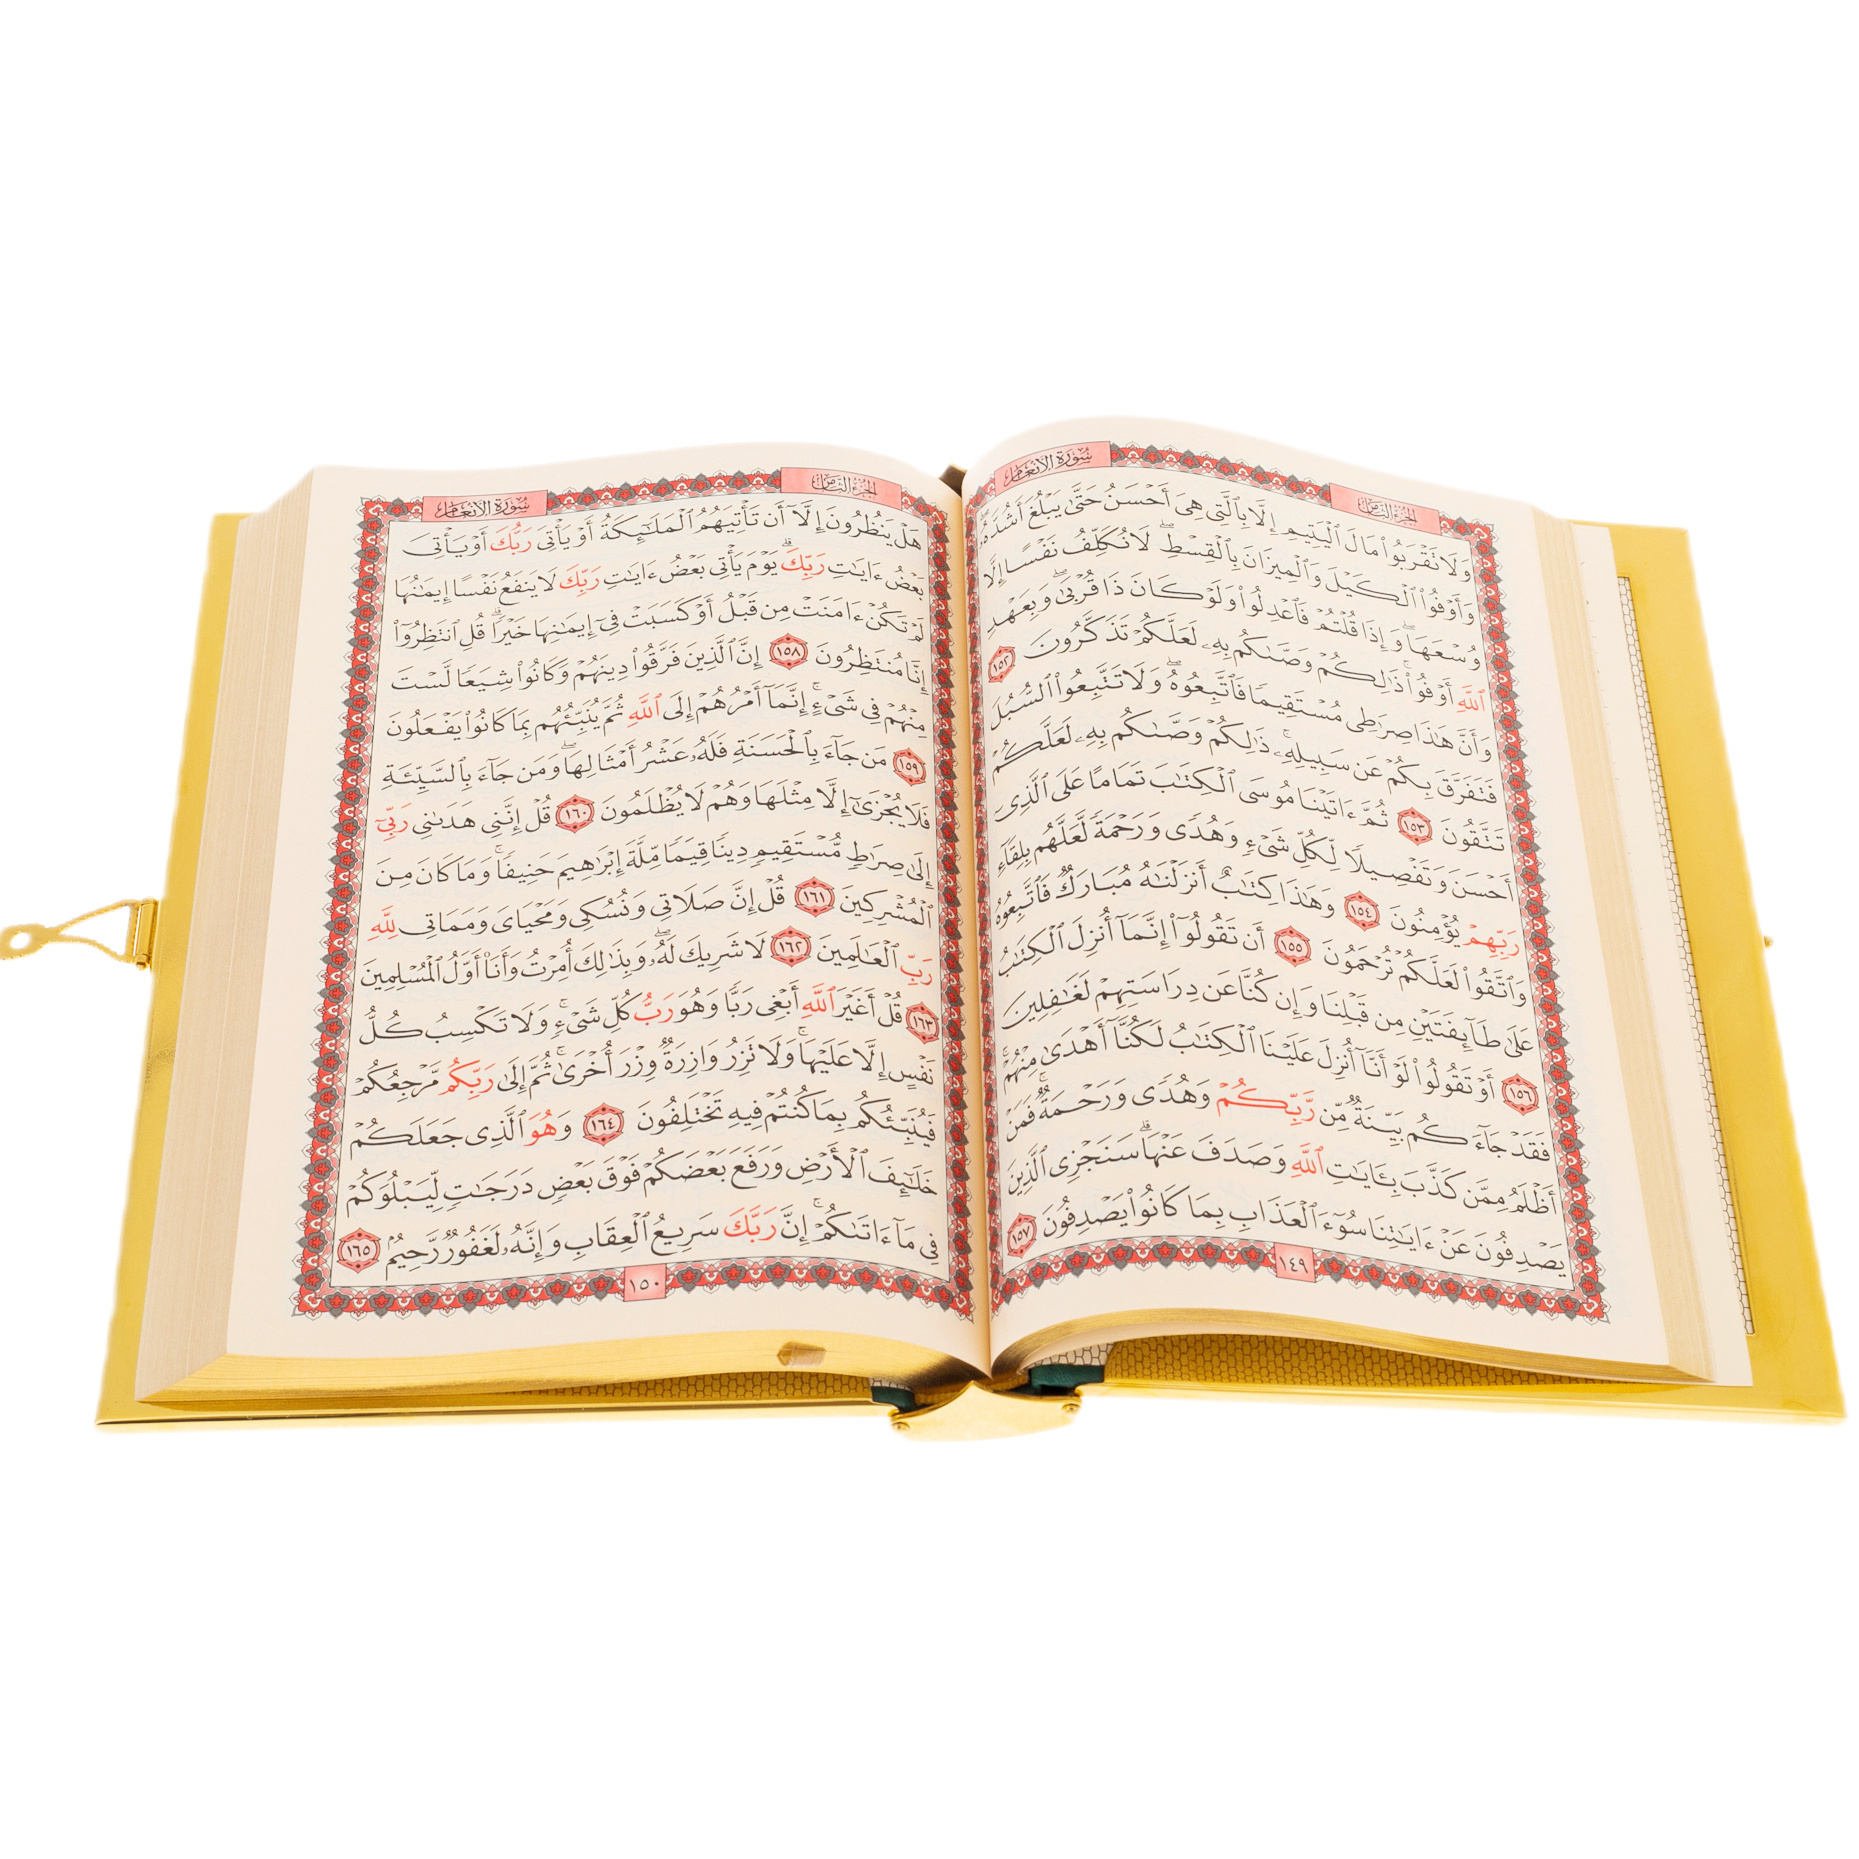 سُورَةُ الأَنْعَامِ
الجُزْءُ الثَّامِنُ
وَلَا تَقْرَبُوا۟ مَالَ ٱلْيَتِيمِ إِلَّا بِٱلَّتِى هِىَ أَحْسَنُ حَتَّىٰ يَبْلُغَ أَشُدَّهُۥۖ
وَأَوْفُوا۟ ٱلْكَيْلَ وَٱلْمِيزَانَ بِٱلْقِسْطِۖ لَا نُكَلِّفُ نَفْسًا إِلَّا
وُسْعَهَاۖ وَإِذَا قُلْتُمْ فَٱعْدِلُوا۟ وَلَوْ كَانَ ذَا قُرْبَىٰۖ وَبِعَهْدِ
ٱللَّهِ أَوْفُوا۟ۚ ذَٰلِكُمْ وَصَّىٰكُم بِهِۦ لَعَلَّكُمْ تَذَكَّرُونَ ١٥٢
وَأَنَّ هَٰذَا صِرَٰطِى مُسْتَقِيمًا فَٱتَّبِعُوهُۖ وَلَا تَتَّبِعُوا۟ ٱلسُّبُلَ
فَتَفَرَّقَ بِكُمْ عَن سَبِيلِهِۦۚ ذَٰلِكُمْ وَصَّىٰكُم بِهِۦ لَعَلَّكُمْ
تَتَّقُونَ ١٥٣ ثُمَّ ءَاتَيْنَا مُوسَى ٱلْكِتَٰبَ تَمَامًا عَلَى ٱلَّذِىٓ
أَحْسَنَ وَتَفْصِيلًا لِّكُلِّ شَىْءٍ وَهُدًى وَرَحْمَةً لَّعَلَّهُم بِلِقَآءِ
رَبِّهِمْ يُؤْمِنُونَ ١٥٤ وَهَٰذَا كِتَٰبٌ أَنزَلْنَٰهُ مُبَارَكٌ فَٱتَّبِعُوهُ
وَٱتَّقُوا۟ لَعَلَّكُمْ تُرْحَمُونَ ١٥٥ أَن تَقُولُوٓا۟ إِنَّمَآ أُنزِلَ ٱلْكِتَٰبُ
عَلَىٰ طَآئِفَتَيْنِ مِن قَبْلِنَا وَإِن كُنَّا عَن دِرَاسَتِهِمْ لَغَٰفِلِينَ
١٥٦ أَوْ تَقُولُوا۟ لَوْ أَنَّآ أُنزِلَ عَلَيْنَا ٱلْكِتَٰبُ لَكُنَّآ أَهْدَىٰ مِنْهُمْۚ
فَقَدْ جَآءَكُم بَيِّنَةٌ مِّن رَّبِّكُمْ وَهُدًى وَرَحْمَةٌۚ فَمَنْ
أَظْلَمُ مِمَّن كَذَّبَ بِـَٔايَٰتِ ٱللَّهِ وَصَدَفَ عَنْهَاۗ سَنَجْزِى ٱلَّذِينَ
يَصْدِفُونَ عَنْ ءَايَٰتِنَا سُوٓءَ ٱلْعَذَابِ بِمَا كَانُوا۟ يَصْدِفُونَ ١٥٧
١٤٩
الجُزْءُ الثَّامِنُ
سُورَةُ الأَنْعَامِ
هَلْ يَنظُرُونَ إِلَّآ أَن تَأْتِيَهُمُ ٱلْمَلَٰٓئِكَةُ أَوْ يَأْتِىَ رَبُّكَ أَوْ يَأْتِىَ
بَعْضُ ءَايَٰتِ رَبِّكَۗ يَوْمَ يَأْتِى بَعْضُ ءَايَٰتِ رَبِّكَ لَا يَنفَعُ نَفْسًا إِيمَٰنُهَا
لَمْ تَكُنْ ءَامَنَتْ مِن قَبْلُ أَوْ كَسَبَتْ فِىٓ إِيمَٰنِهَا خَيْرًاۗ قُلِ ٱنتَظِرُوٓا۟
إِنَّا مُنتَظِرُونَ ١٥٨ إِنَّ ٱلَّذِينَ فَرَّقُوا۟ دِينَهُمْ وَكَانُوا۟ شِيَعًا لَّسْتَ
مِنْهُمْ فِى شَىْءٍۚ إِنَّمَآ أَمْرُهُمْ إِلَى ٱللَّهِ ثُمَّ يُنَبِّئُهُم بِمَا كَانُوا۟ يَفْعَلُونَ
١٥٩ مَن جَآءَ بِٱلْحَسَنَةِ فَلَهُۥ عَشْرُ أَمْثَالِهَاۖ وَمَن جَآءَ بِٱلسَّيِّئَةِ
فَلَا يُجْزَىٰٓ إِلَّا مِثْلَهَا وَهُمْ لَا يُظْلَمُونَ ١٦٠ قُلْ إِنَّنِى هَدَىٰنِى رَبِّىٓ
إِلَىٰ صِرَٰطٍ مُّسْتَقِيمٍ دِينًا قِيَمًا مِّلَّةَ إِبْرَٰهِيمَ حَنِيفًاۚ وَمَا كَانَ مِنَ
ٱلْمُشْرِكِينَ ١٦١ قُلْ إِنَّ صَلَاتِى وَنُسُكِى وَمَحْيَاىَ وَمَمَاتِى لِلَّهِ
رَبِّ ٱلْعَٰلَمِينَ ١٦٢ لَا شَرِيكَ لَهُۥۖ وَبِذَٰلِكَ أُمِرْتُ وَأَنَا۠ أَوَّلُ ٱلْمُسْلِمِينَ
١٦٣ قُلْ أَغَيْرَ ٱللَّهِ أَبْغِى رَبًّا وَهُوَ رَبُّ كُلِّ شَىْءٍۚ وَلَا تَكْسِبُ كُلُّ
نَفْسٍ إِلَّا عَلَيْهَاۚ وَلَا تَزِرُ وَازِرَةٌ وِزْرَ أُخْرَىٰۚ ثُمَّ إِلَىٰ رَبِّكُم مَّرْجِعُكُمْ
فَيُنَبِّئُكُم بِمَا كُنتُمْ فِيهِ تَخْتَلِفُونَ ١٦٤ وَهُوَ ٱلَّذِى جَعَلَكُمْ
خَلَٰٓئِفَ ٱلْأَرْضِ وَرَفَعَ بَعْضَكُمْ فَوْقَ بَعْضٍ دَرَجَٰتٍ لِّيَبْلُوَكُمْ
فِى مَآ ءَاتَىٰكُمْۗ إِنَّ رَبَّكَ سَرِيعُ ٱلْعِقَابِ وَإِنَّهُۥ لَغَفُورٌ رَّحِيمٌ ١٦٥
١٥٠